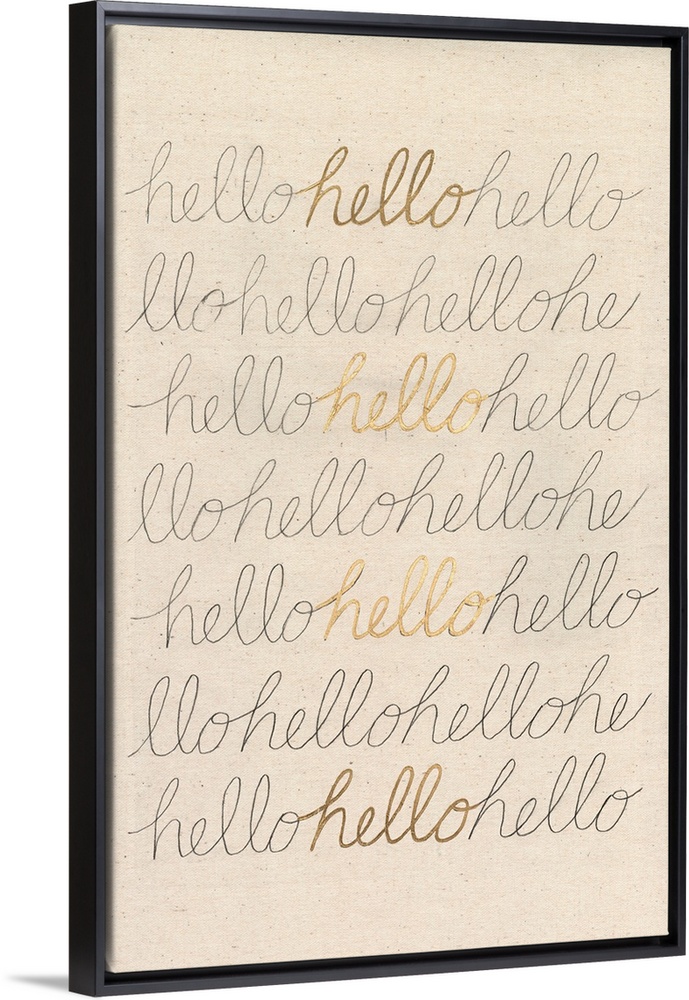 hellohellohello
llohellohellohe
hellohellohello
llohellohellohe
hellohellohello
llohellohellohe
hellohellohello